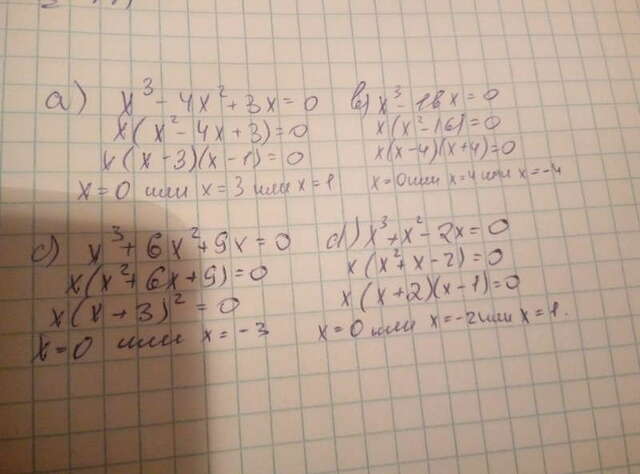 a) x³ - 4x² + 3x = 0
x(x² - 4x + 3) = 0
x(x - 3)(x - 1) = 0
x = 0 или x = 3 или x = 1
b) x³ - 16x = 0
x(x² - 16) = 0
x(x - 4)(x + 4) = 0
x = 0 или x = 4 или x = -4
c) x³ + 6x² + 9x = 0
x(x² + 6x + 9) = 0
x(x + 3)² = 0
x = 0 или x = -3
d) x³ + x² - 2x = 0
x(x² + x - 2) = 0
x(x + 2)(x - 1) = 0
x = 0 или x = -2 или x = 1.